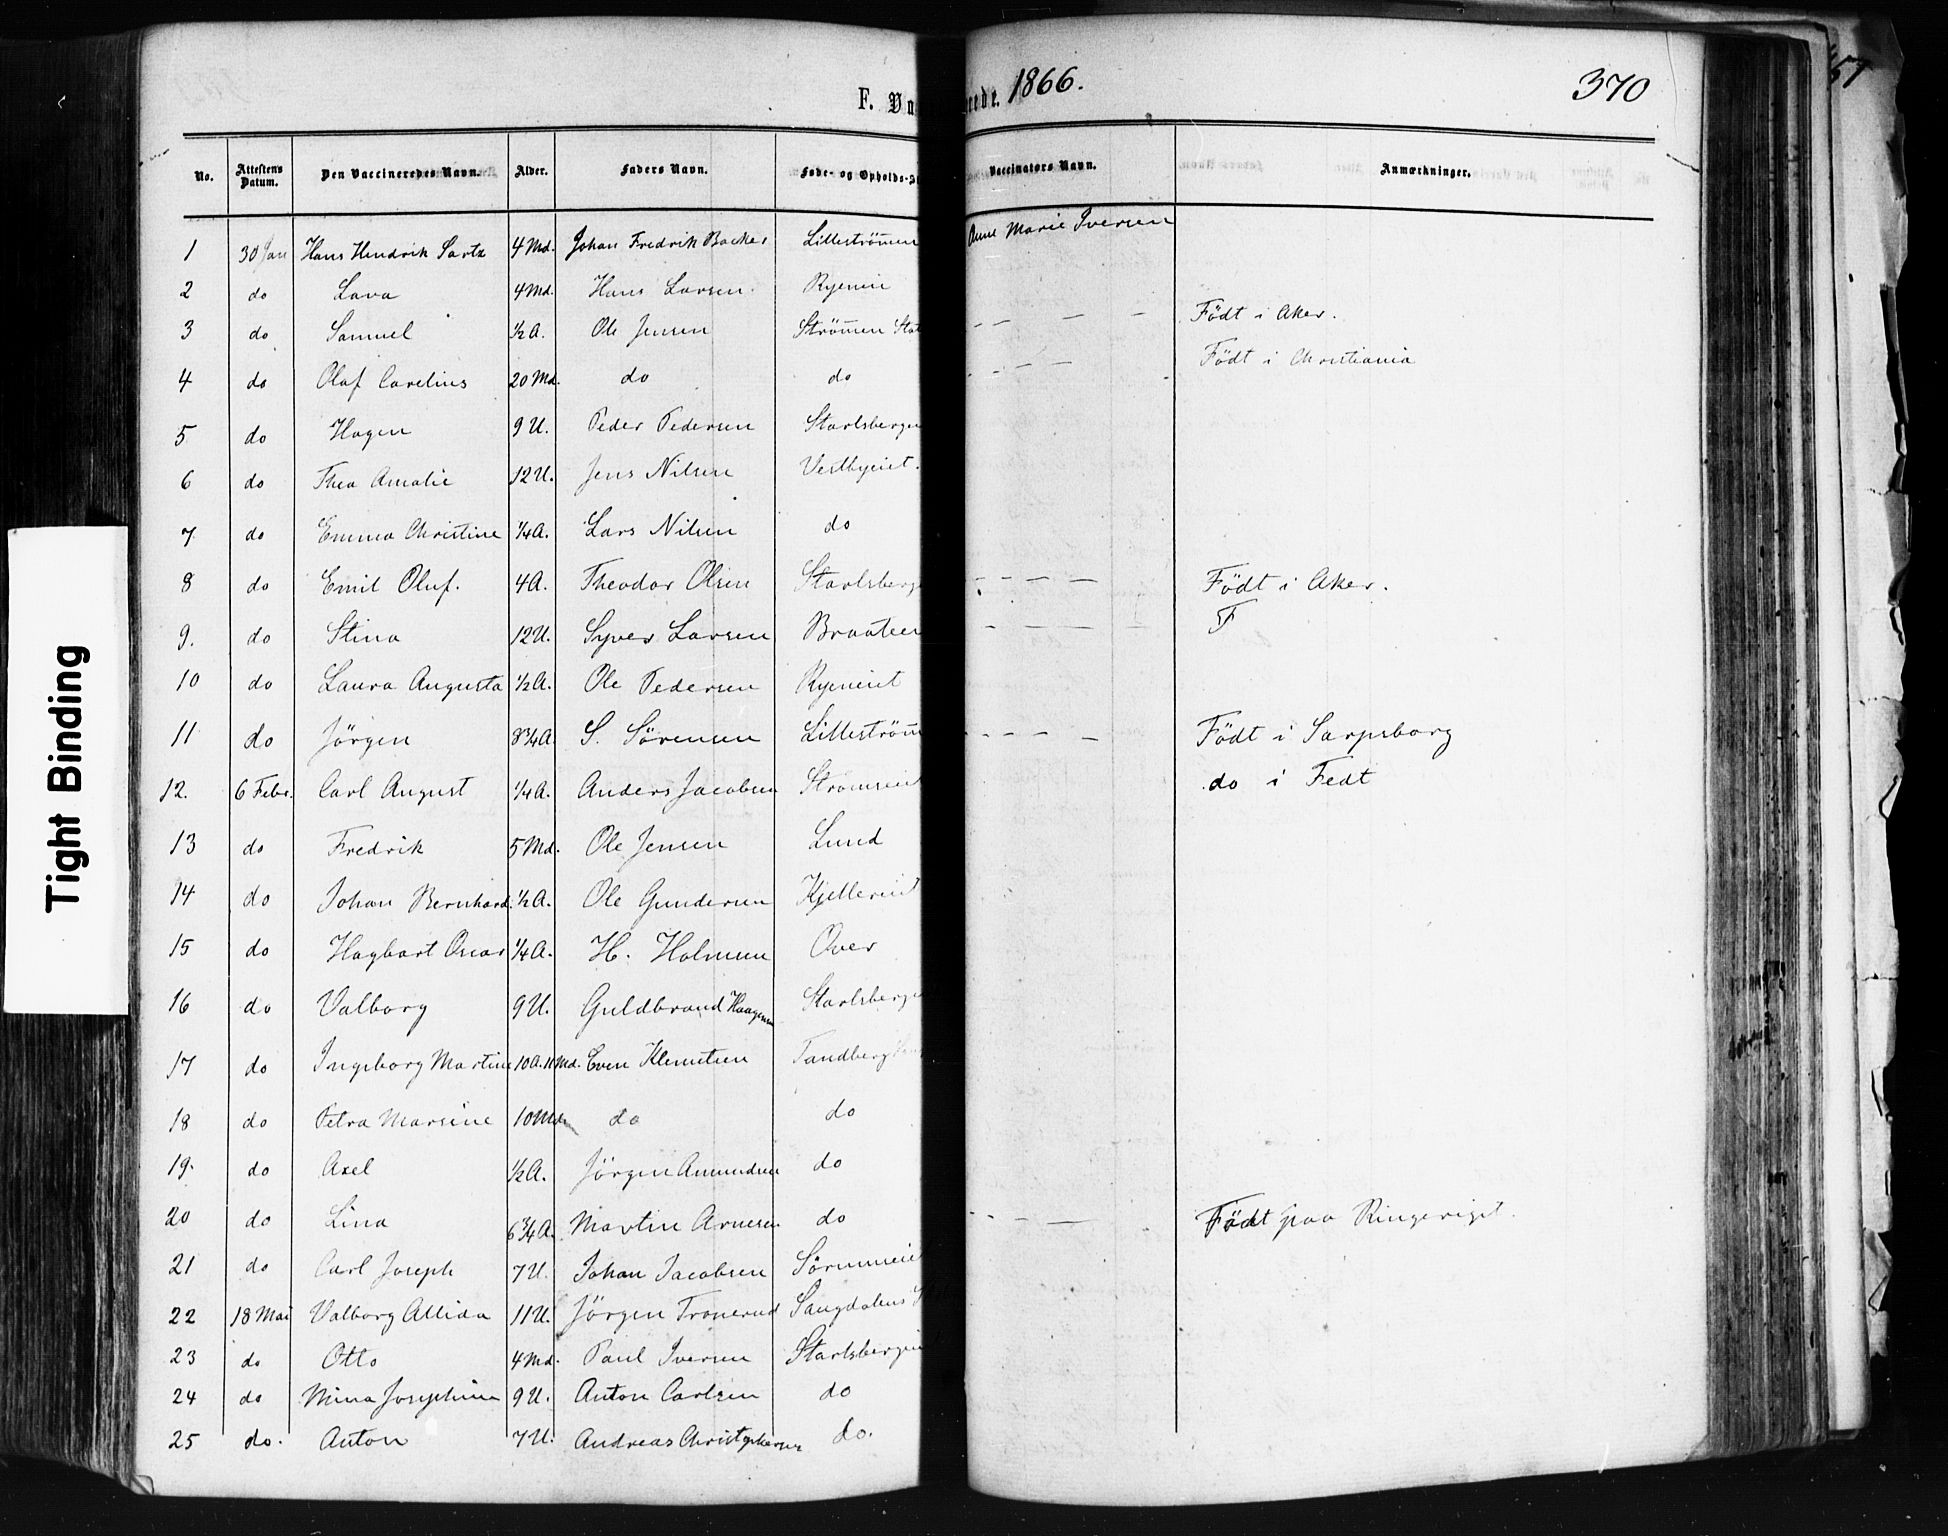 F. Va
rede. 1866.
370
57
No. Attestens Datum. Den Vaccineredes Navn. Alder. Faders Navn. Føde- og Opholds- Vaccinators Navn. Anmærkninger.
1 30 Jan Hans Hendrik Sartz 4 Md. Johan Fredrik Backer Lilleströmen Anne Marie Iversen
2 do Lava 4 Md. Hans Larsen. Ryeneie
3 do Samuel ½ A. Ole Jensen Strömen Stat — — — — Födt i Aker.
4 do Olaf Carelius 20 Md. do do - — — Födt i Christiania
5 do Hagen 9 U. Peder Pedersen Starlsberge
6 do Thea Amalie 12 U. Jens Nilsen Vestbyeiet.
7 do Emma Christine ¼ A. Lars Nilsen do
8 do Emil Oluf. 4 A. Theodor Olsen Starlsberge — — — — Födt i Aker.
9. do Stina 12 U. Syver Larsen Braateen - — — — F
10 do Laura Augusta ½ A. Ole Pedersen Ryeneiet
11 do Jörgen 8¾ A. S. Sörensen Lilleström — — — — Födt i Sarpsborg
12. 6 Febr. Carl August ¼ A. Anders Jacobsen Strömseiet do i Fedt
13 do Fredrik 5 Md. Ole Jensen Lund
14 do Johan Bernhard. ½ A. Ole Gundersen Kjellereiet
15 do Hagbart Oscar ¼ A. H. Holmsen Over
16 do Valborg 9 U. Guldbrand Haagensen Starlsberge
17 do Ingeborg Martine 10 A. 11 Md. Even Klemetsen Tandberg
18 do Petra Marsine 10 Md. do do
19. do Axel ½ A. Jörgen Amundsen do
20 do Lina 6¾ A. Martin Arnesen do - — — Födt paa Ringeriget.
21 do Carl Joseph 7 U. Johan Jacobsen Sörumeiet
22 18 Mai Valborg Allida 11 U. Jörgen Tronerud Saugdalens
23 do Otto 4 Md. Paul Iversen Starlsbergei
24 do Mina Josephine 9 U. Anton Carlsen do
25 do. Anton 7 U. Andreas Christophersen do.
Tight Binding